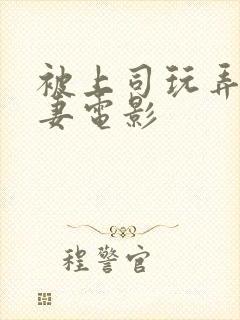 被上司玩弄
妻電影
程警官